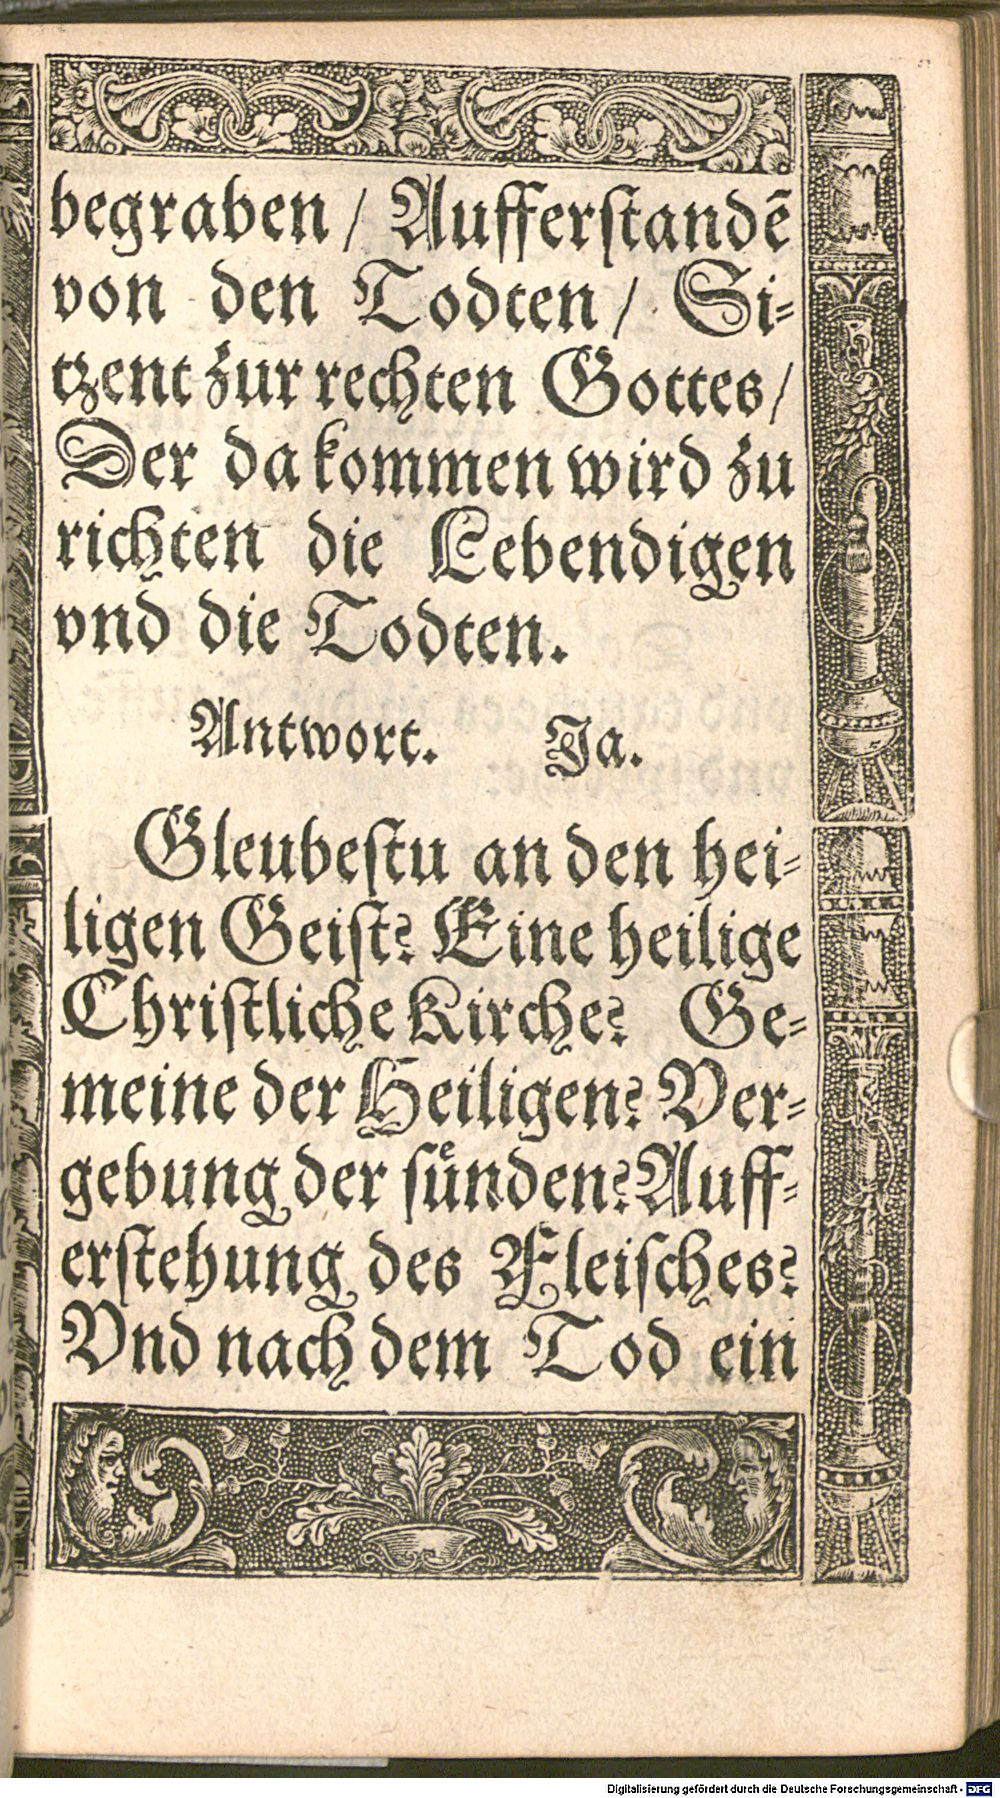 begraben / Aufferſtandẽ
von den Todten / Si⸗
tzent zur rechten Gottes /
Der da kommen wird zu
richten die Lebendigen
vnd die Todten.
Antwort. Ja.
Gleubeſtu an den hei⸗
ligen Geiſt? Eine heilige
Chriſtliche Kirche? Ge⸗
meine der Heiligen? Ver⸗
gebung der ſuͤnden? Auff⸗
erſtehung des Fleiſches?
Vnd nach dem Tod ein
Digitalisierung gefördert durch die Deutsche Forschungsgemeinschaft - DFG